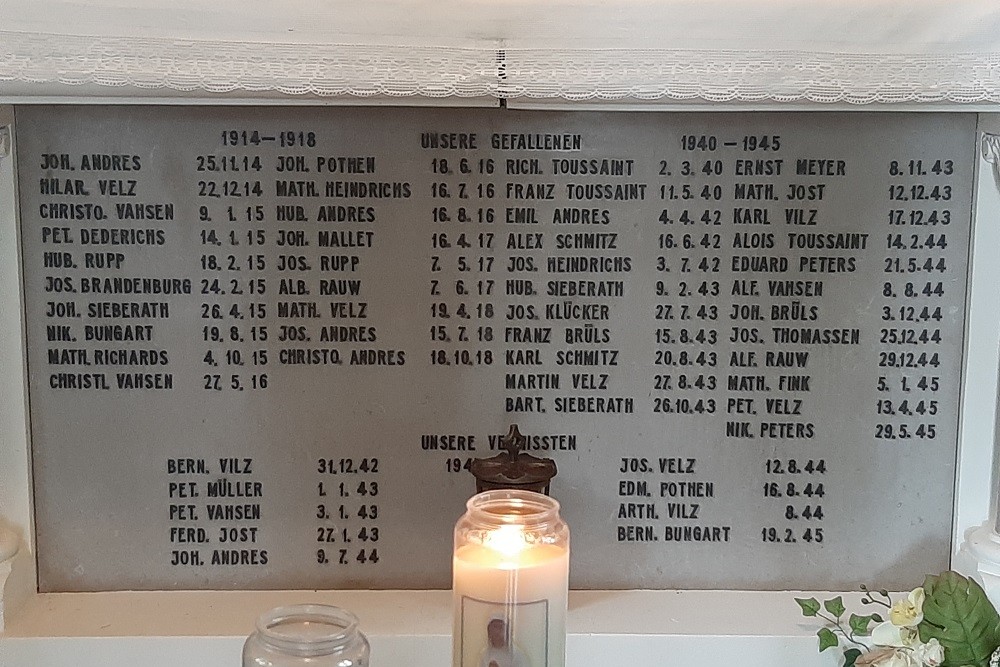 1914—1918 UNSERE GEFALLENEN 1940—1945
JOH. ANDRES 25.11.14 JOH. POTHEN 18. 6. 16 RICH. TOUSSAINT 2. 3. 40 ERNST MEYER 8.11.43
HILAR. VELZ 22.12.14 MATH. HEINDRICHS 16. 7. 16 FRANZ TOUSSAINT 11.5. 40 MATH. JOST 12.12.43
CHRISTO. VAHSEN 9. 1. 15 HUB. ANDRES 16. 8. 16 EMIL ANDRES 4. 4. 42 KARL VILZ 17.12.43
PET. DEDERICHS 14. 1. 15 JOH. MALLET 16. 4. 17 ALEX SCHMITZ 16. 6. 42 ALOIS TOUSSAINT 14.2.44
HUB. RUPP 18. 2. 15 JOS. RUPP 7. 5. 17 JOS. HEINDRICHS 3. 7. 42 EDUARD PETERS 21.5.44
JOS. BRANDENBURG 24. 2. 15 ALB. RAUW 7. 6. 17 HUB. SIEBERATH 9. 2. 43 ALF. VAHSEN 8. 8. 44
JOH. SIEBERATH 26. 4. 15 MATH. VELZ 19. 4. 18 JOS. KLÜCKER 27. 7. 43 JOH. BRÜLS 3.12.44
NIK. BUNGART 19. 8. 15 JOS. ANDRES 15. 7. 18 FRANZ BRÜLS 15. 8. 43 JOS. THOMASSEN 25.12.44
MATH. RICHARDS 4. 10. 15 CHRISTO. ANDRES 18. 10. 18 KARL SCHMITZ 20. 8. 43 ALF. RAUW 29.12.44
CHRISTL VAHSEN 27. 5. 16 MARTIN VELZ 27. 8. 43 MATH. FINK 5. 1. 45
BART. SIEBERATH 26.10.43 PET. VELZ 13.4.45
NIK. PETERS 29.5.45
UNSERE
BERN. VILZ 31.12.42 JOS. VELZ 12. 8. 44
PET. MÜLLER 1. 1. 43 EDM. POTHEN 16. 8. 44
PET. VAHSEN 3. 1. 43 ARTH. VILZ 8. 44
FERD. JOST 27. 1. 43 BERN. BUNGART 19. 2. 45
JOH. ANDRES 9. 7. 44